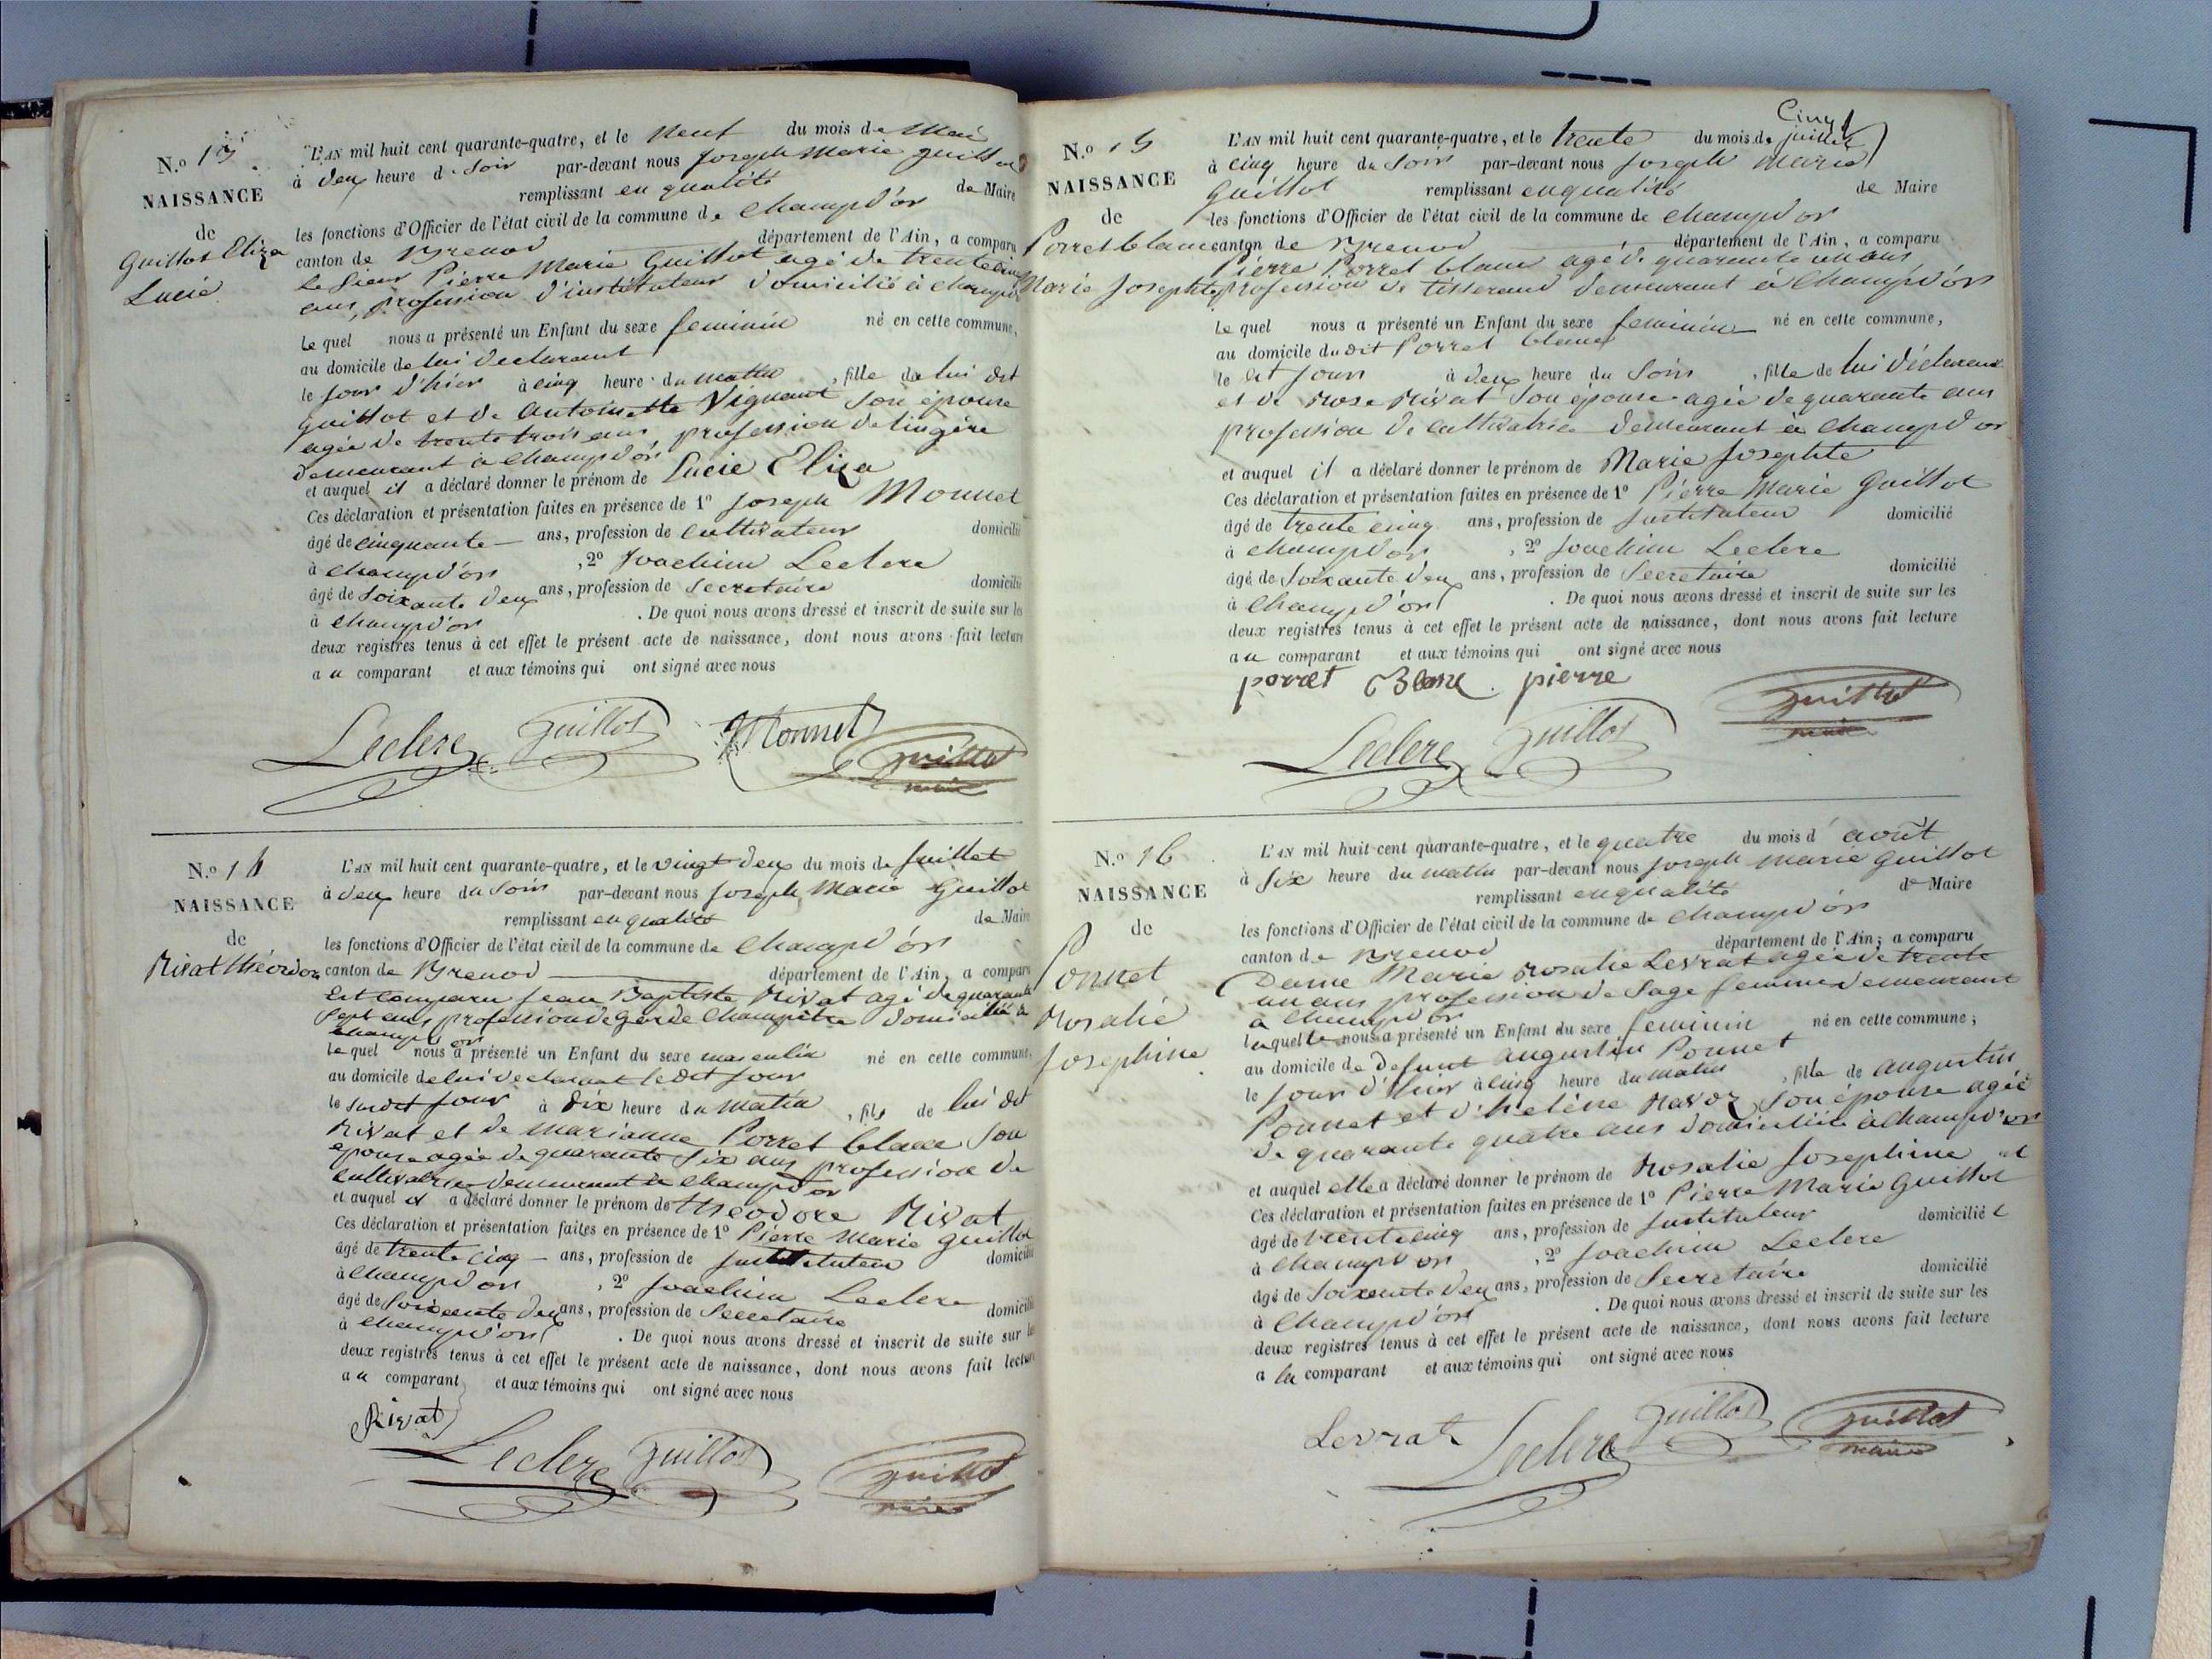 N.o 13
NAISSANCE
de
Guillot Eliza
Lucie
L'AN mil huit cent quarante-quatre, et le neuf du mois de Mai
à deux heure du Soir par-devant nous Joseph Marie Guillot
remplissant en qualité de Maire
les fonctions d'Officier de l'état civil de la commune de Champd'or
canton de Brenod département de l'Ain, a comparu
le Sieur Pierre Marie Guillot agé de trente cinq
ans, profession d'instituteur domicilié à Champd'or
Le quel nous a présenté un Enfant du sexe feminin né en cette commune,
au domicile de lui declarant
le jour d'hier à cinq heure du matin, fille de lui dit
Guillot et de Antoinette Vignant son épouse
agée de trente trois ans, profession de lingère
demeurant à Champd'or
et auquel il a déclaré donner le prénom de Lucie Eliza
Ces déclaration et présentation faites en présence de 1o Joseph Monnet
âgé de cinquante ans, profession de cultivateur domicilié
à Champd'or, 2o Joachim Leclerc
âgé de soixante deux ans, profession de Secretaire domicilié
à Champd'or. De quoi nous avons dressé et inscrit de suite sur les
deux registres tenus à cet effet le présent acte de naissance, dont nous avons fait lecture
au comparant et aux témoins qui ont signé avec nous
Leclerc Guillot Monnet Guillot
maire
N.o 14
NAISSANCE
de
Rivat théodore
L'AN mil huit cent quarante-quatre, et le vingt deux du mois de Juillet
à deux heure du Soir par-devant nous Joseph Marie Guillot
remplissant en qualité de Maire
les fonctions d'Officier de l'état civil de la commune de Champd'or
canton de Brenod département de l'Ain, a comparu
Est comparu Jean Baptiste Rivat agé de quarante
sept ans profession de garde Champêtre domicilié à
Champd'or
Le quel nous a présenté un Enfant du sexe masculin né en cette commune,
au domicile de lui declarant le dit jour
le susdit jour à dix heure du matin, fils de lui dit
Rivat et de Marianne Porret blanc son
épouse agée de quarante six ans profession de
cultivatrice demeurant à Champd'or
et auquel il a déclaré donner le prénom de théodore Rivat
Ces déclaration et présentation faites en présence de 1o Pierre Marie Guillot
âgé de trente cinq ans, profession de Instituteur domicilié
à Champd'or, 2o Joachim Leclerc
âgé de soixante deux ans, profession de Secretaire domicilié
à Champd'or. De quoi nous avons dressé et inscrit de suite sur les
deux registres tenus à cet effet le présent acte de naissance, dont nous avons fait lecture
au comparant et aux témoins qui ont signé avec nous
Rivat
Leclerc Guillot Guillot
maire
N.o 15
NAISSANCE
de
Porret blanc
Marie Josephte
Cinq
L'AN mil huit cent quarante-quatre, et le trente du mois de juillet
à cinq heure du Soir par-devant nous Joseph Marie
Guillot remplissant en qualité de Maire
les fonctions d'Officier de l'état civil de la commune de Champd'or
canton de Brenod département de l'Ain, a comparu
Pierre Porret blanc agé de quarante un ans
profession de tisserand demeurant à Champd'or
Le quel nous a présenté un Enfant du sexe feminin né en cette commune,
au domicile du dit Porret blanc
le dit jour à deux heure du Soir, fille de lui déclarant
et de Rose Rivat son épouse agée de quarante ans
profession de cultivatrice demeurant à Champd'or
et auquel il a déclaré donner le prénom de Marie Josephte
Ces déclaration et présentation faites en présence de 1o Pierre Marie Guillot
âgé de trente cinq ans, profession de Instituteur domicilié
à Champd'or, 2o Joachim Leclerc
âgé de soixante deux ans, profession de Secretaire domicilié
à Champd'or. De quoi nous avons dressé et inscrit de suite sur les
deux registres tenus à cet effet le présent acte de naissance, dont nous avons fait lecture
au comparant et aux témoins qui ont signé avec nous
porret Blanc pierre
Leclerc Guillot Guillot
maire
N.o 16
NAISSANCE
de
Ponnet
Rosalie
Josephine
L'AN mil huit cent quarante-quatre, et le quatre du mois d'août
à six heure du matin par-devant nous Joseph Marie Guillot
remplissant en qualité de Maire
les fonctions d'Officier de l'état civil de la commune de Champd'or
canton de Brenod département de l'Ain, a comparu
Dame Marie Rosalie Levrat agée de trente
un ans profession de Sage femme demeurant
à Champd'or
laquelle nous a présenté un Enfant du sexe feminin né en cette commune;
au domicile de Defunt Augustin Ponnet
le jour d'hier à cinq heure du matin, fille de Augustin
Ponnet et d'helène Ravoz, son épouse agée
de quarante quatre ans domiciliée à Champd'or
et auquel elle a déclaré donner le prénom de Rosalie Josephine
Ces déclaration et présentation faites en présence de 1o Pierre Marie Guillot
âgé de trente cinq ans, profession de Instituteur domicilié
à Champd'or, 2o Joachim Leclerc
âgé de soixante deux ans, profession de Secretaire domicilié
à Champd'or. De quoi nous avons dressé et inscrit de suite sur les
deux registres tenus à cet effet le présent acte de naissance, dont nous avons fait lecture
a la comparant et aux témoins qui ont signé avec nous
Levrat Leclerc Guillot Guillot
maire